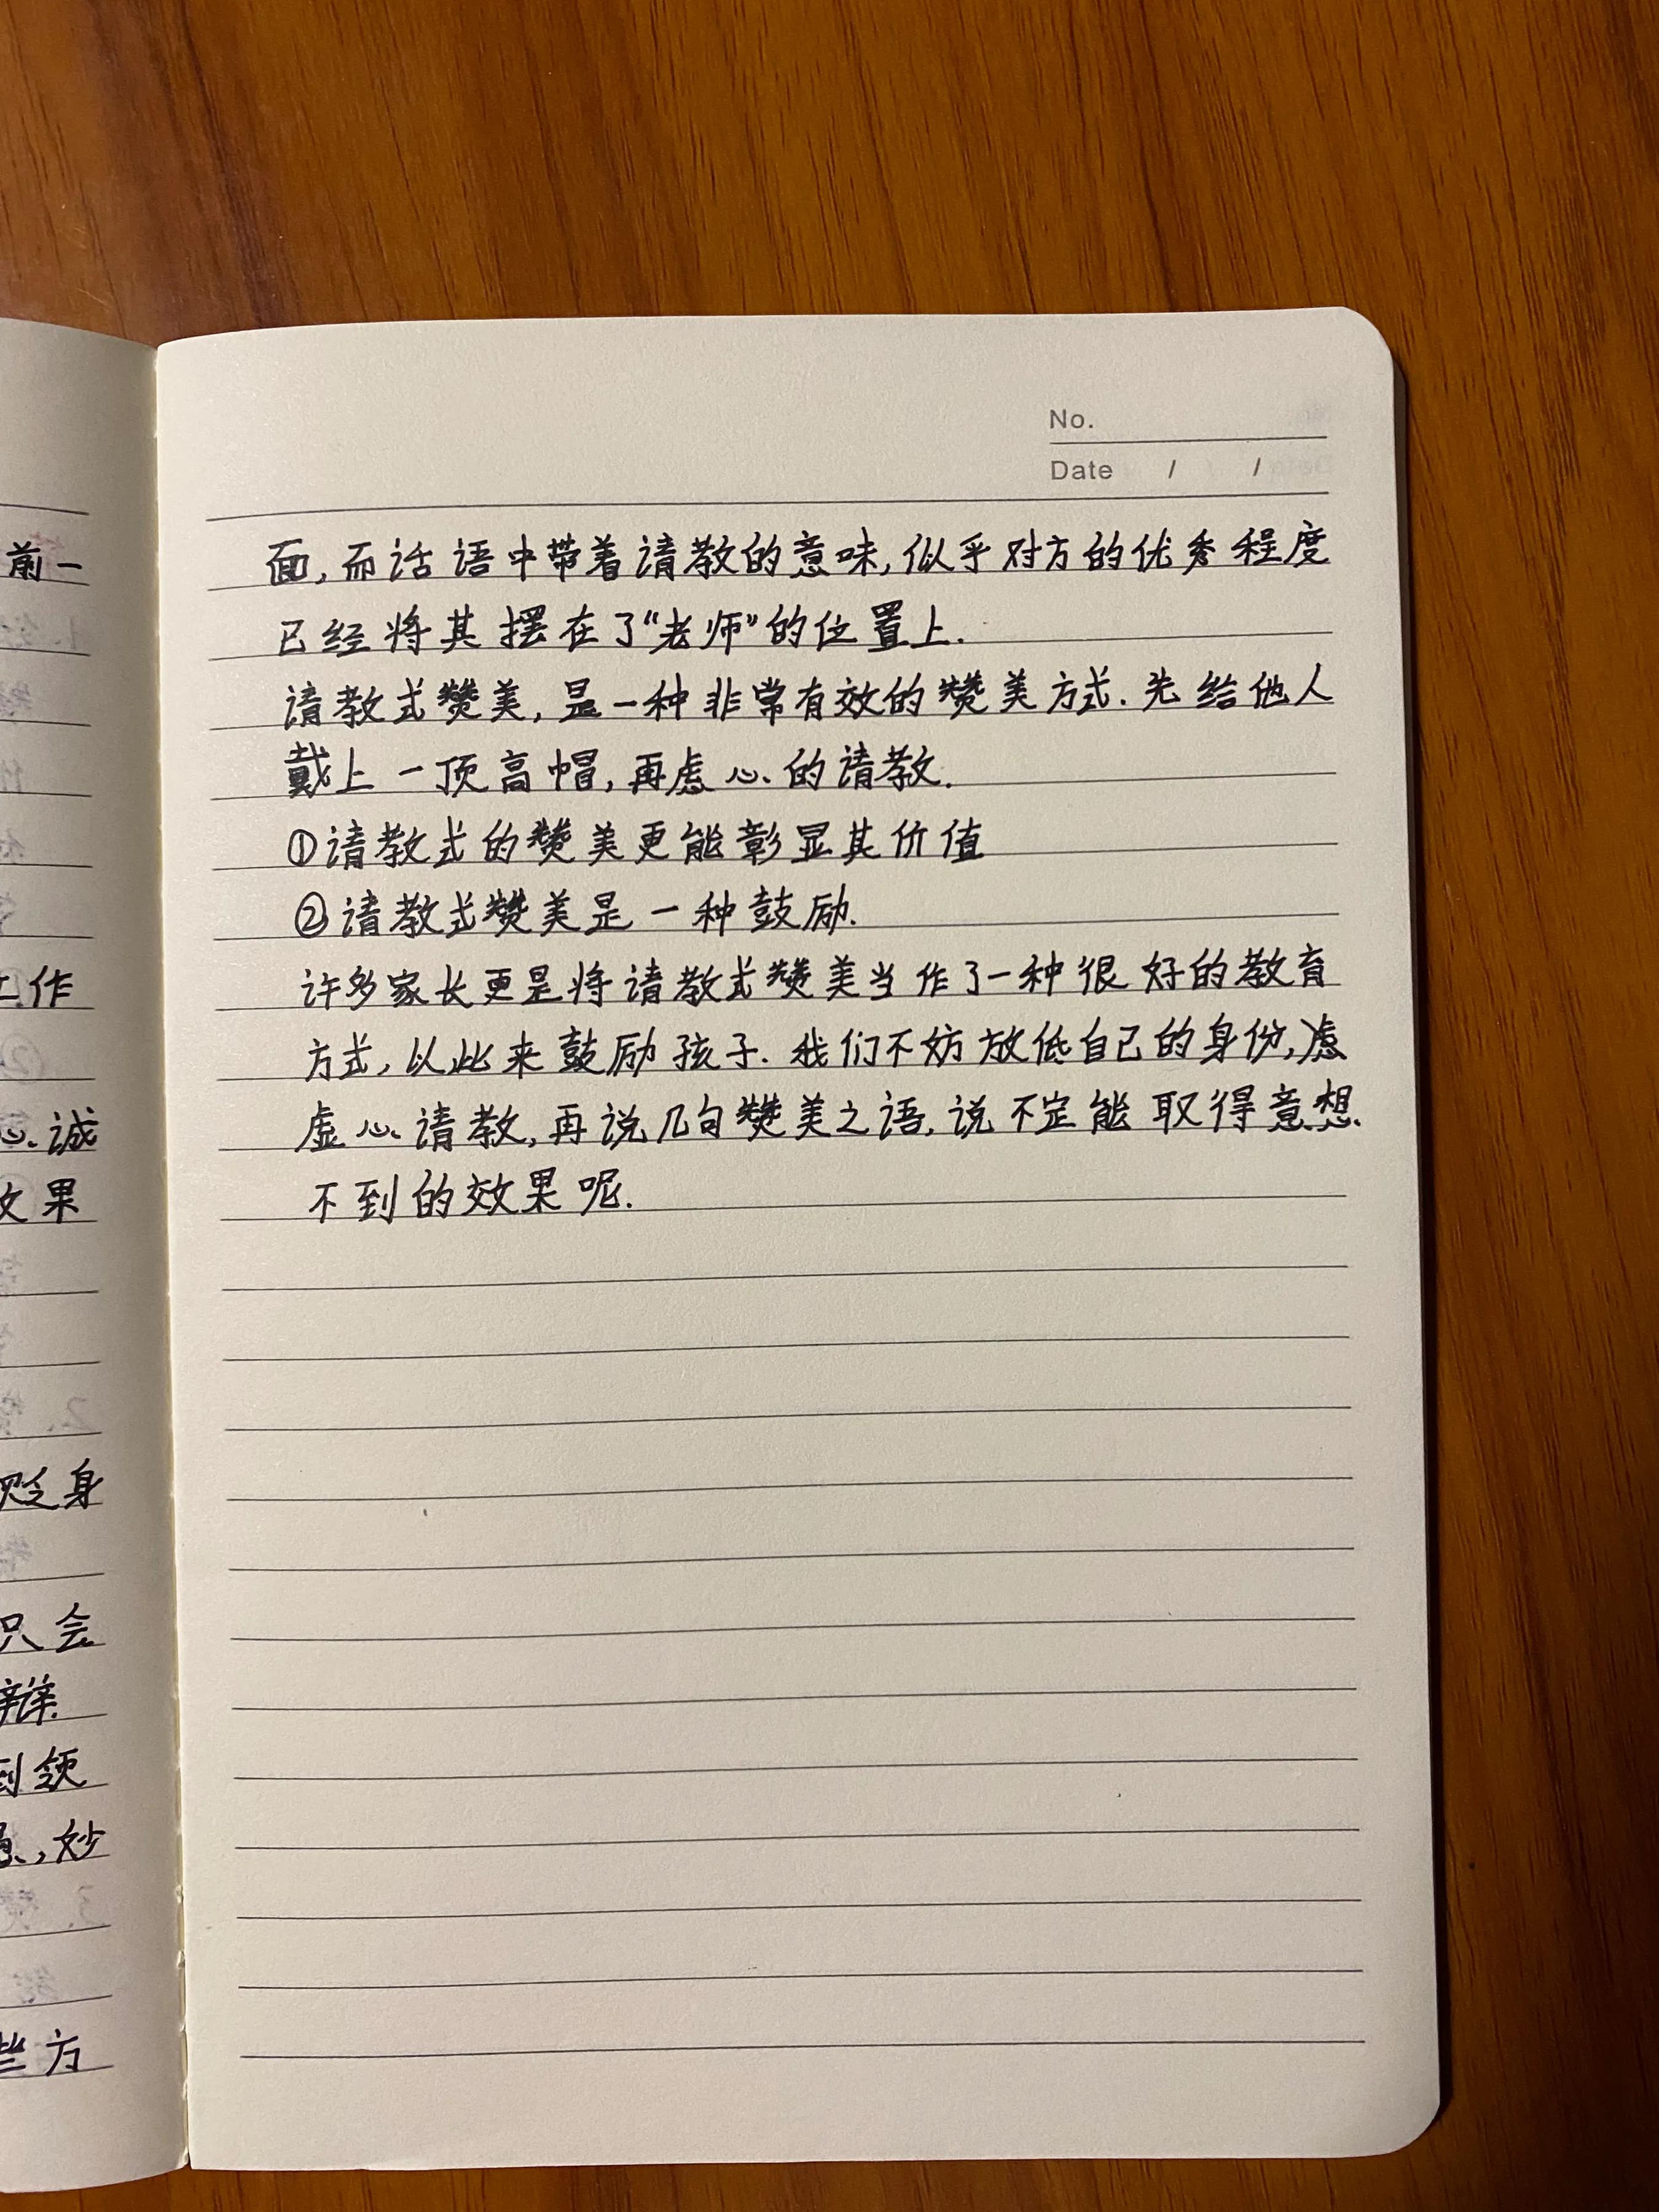 前一
工作
心.诚
效果
贬身
只会
辩.
到领
,妙
些方
No.
Date / /
面,而话语中带着请教的意味,似乎对方的优秀程度
已经将其摆在了“老师”的位置上.
请教式赞美,是一种非常有效的赞美方式.先给他人
戴上一顶高帽,再虚心的请教.
①请教式的赞美更能彰显其价值
②请教式赞美是一种鼓励.
许多家长更是将请教式赞美当作了一种很好的教育
方式,以此来鼓励孩子.我们不妨放低自己的身份,
虚心请教,再说几句赞美之语,说不定能取得意想
不到的效果呢.